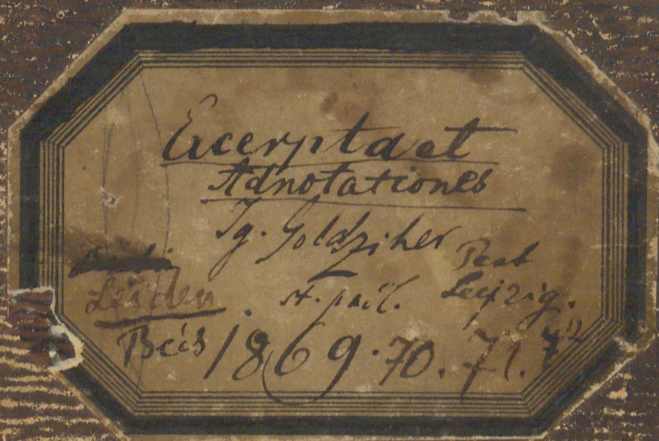 Excerpta et
Adnotationes
Ig. Goldziher
st. phil.
Pest
Leipzig.
Leiden
Bécs 1869. 70. 71. 72